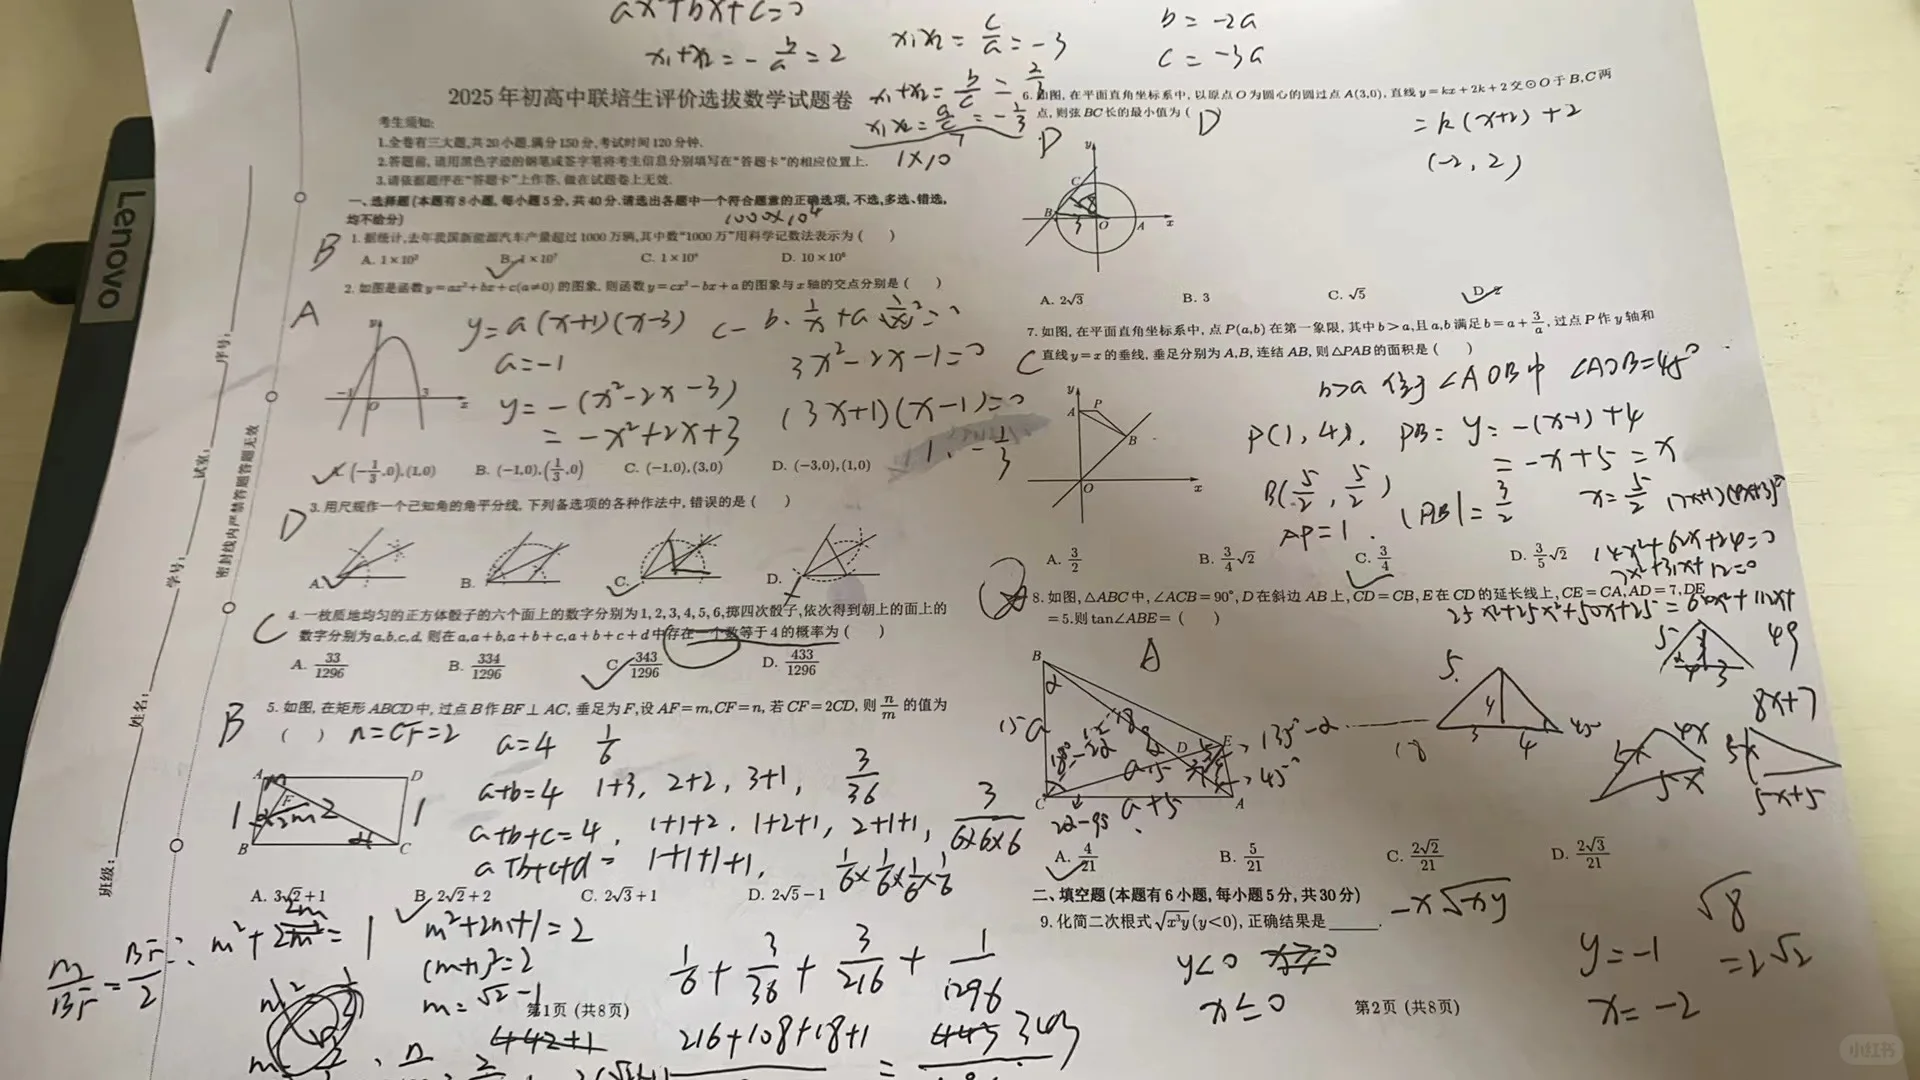 ax²+bx+c=0
x₁+x₂=-b/a=2
x₁x₂=c/a=-3
b=-2a
c=-3a
2025年初高中联培生评价选拔数学试题卷
x₁+x₂=b/c=2/3
x₁x₂=a/c=-1/3
1×10⁷
考生须知:
1.全卷有三大题,共20小题.满分150分,考试时间120分钟.
2.答题前,请用黑色字迹的钢笔或签字笔将考生信息分别填写在“答题卡”的相应位置上.
3.请依据题序在“答题卡”上作答,做在试题卷上无效.
一、选择题(本题有8小题,每小题5分,共40分.请选出各题中一个符合题意的正确选项,不选,多选、错选,
均不给分)
1000×10⁴
B
1.据统计,去年我国新能源汽车产量超过1000万辆,其中数“1000万”用科学记数法表示为( )
A. 1×10³ B. 1×10⁷ C. 1×10⁸ D. 10×10⁶
A
2.如图是函数y=ax²+bx+c(a≠0)的图象,则函数y=cx²-bx+a的图象与x轴的交点分别是( )
y
-1 O 3 x
y=a(x+1)(x-3)
a=-1
y=-(x²-2x-3)
=-x²+2x+3
3x²-2x-1=0
(3x+1)(x-1)=0
1, -1/3
A. (-1/3,0),(1,0) B. (-1,0),(1/3,0) C. (-1,0),(3,0) D. (-3,0),(1,0)
D
3.用尺规作一个已知角的角平分线,下列备选项的各种作法中,错误的是( )
A. B. C. D.
C
4.一枚质地均匀的正方体骰子的六个面上的数字分别为1,2,3,4,5,6,掷四次骰子,依次得到朝上的面上的
数字分别为a,b,c,d,则在a,a+b,a+b+c,a+b+c+d中存在一个数等于4的概率为( )
A. 33/1296 B. 334/1296 C. 343/1296 D. 433/1296
B
5.如图,在矩形ABCD中,过点B作BF⊥AC,垂足为F,设AF=m,CF=n,若CF=2CD,则n/m的值为
( )
n=CF=2
a=4 1/6
a+b=4 1+3, 2+2, 3+1, 3/36
a+b+c=4, 1+1+2, 1+2+1, 2+1+1, 3/6×6×6
a+b+c+d= 1+1+1+1, 1/6×1/6×1/6×1/6
A D
F
B C
A. 3√2+1 B. 2√2+2 C. 2√3+1 D. 2√5-1
m/BF=BF/2
m²+2m=1
m²+2m+1=2
(m+1)²=2
m=√2-1
1/6+3/36+3/216+1/1296
第1页 (共8页)
216+108+18+1
343
班级: 姓名: 学号: 试室: 序号:
密封线内严禁答题答题无效
Lenovo
6.如图,在平面直角坐标系中,以原点O为圆心的圆过点A(3,0),直线y=kx+2k+2交⊙O于B,C两
点,则弦BC长的最小值为( )
D
D
=k(x+2)+2
(-2, 2)
y
C
B O A x
3
A. 2√3 B. 3 C. √5 D. 2
7.如图,在平面直角坐标系中,点P(a,b)在第一象限,其中b>a,且a,b满足b=a+3/a,过点P作y轴和
C
直线y=x的垂线,垂足分别为A,B,连结AB,则△PAB的面积是( )
b>a 位于∠AOB中 ∠AOB=45°
y
A P
B
O x
P(1,4), PB: y=-(x-1)+4
=-x+5=x
B(5/2, 5/2)
x=5/2
AP=1. |PB|=3/2
A. 3/2 B. 3/4√2 C. 3/4 D. 3/5√2
14x²+62x+24=0
7x²+31x+12=0
8.如图,△ABC中,∠ACB=90°,D在斜边AB上,CD=CB,E在CD的延长线上,CE=CA,AD=7,DE
=5.则tan∠ABE=( )
A
B
D E
C A
135°-α
45°
a+5
5
4
3 4
45°
49
8x+7
5x+5
A. 4/21 B. 5/21 C. 2√2/21 D. 2√3/21
二、填空题(本题有6小题,每小题5分,共30分)
9.化简二次根式√x³y(y<0),正确结果是______.
-x√xy
y<0
x≤0
√8
=2√2
y=-1
x=-2
第2页 (共8页)
小红书